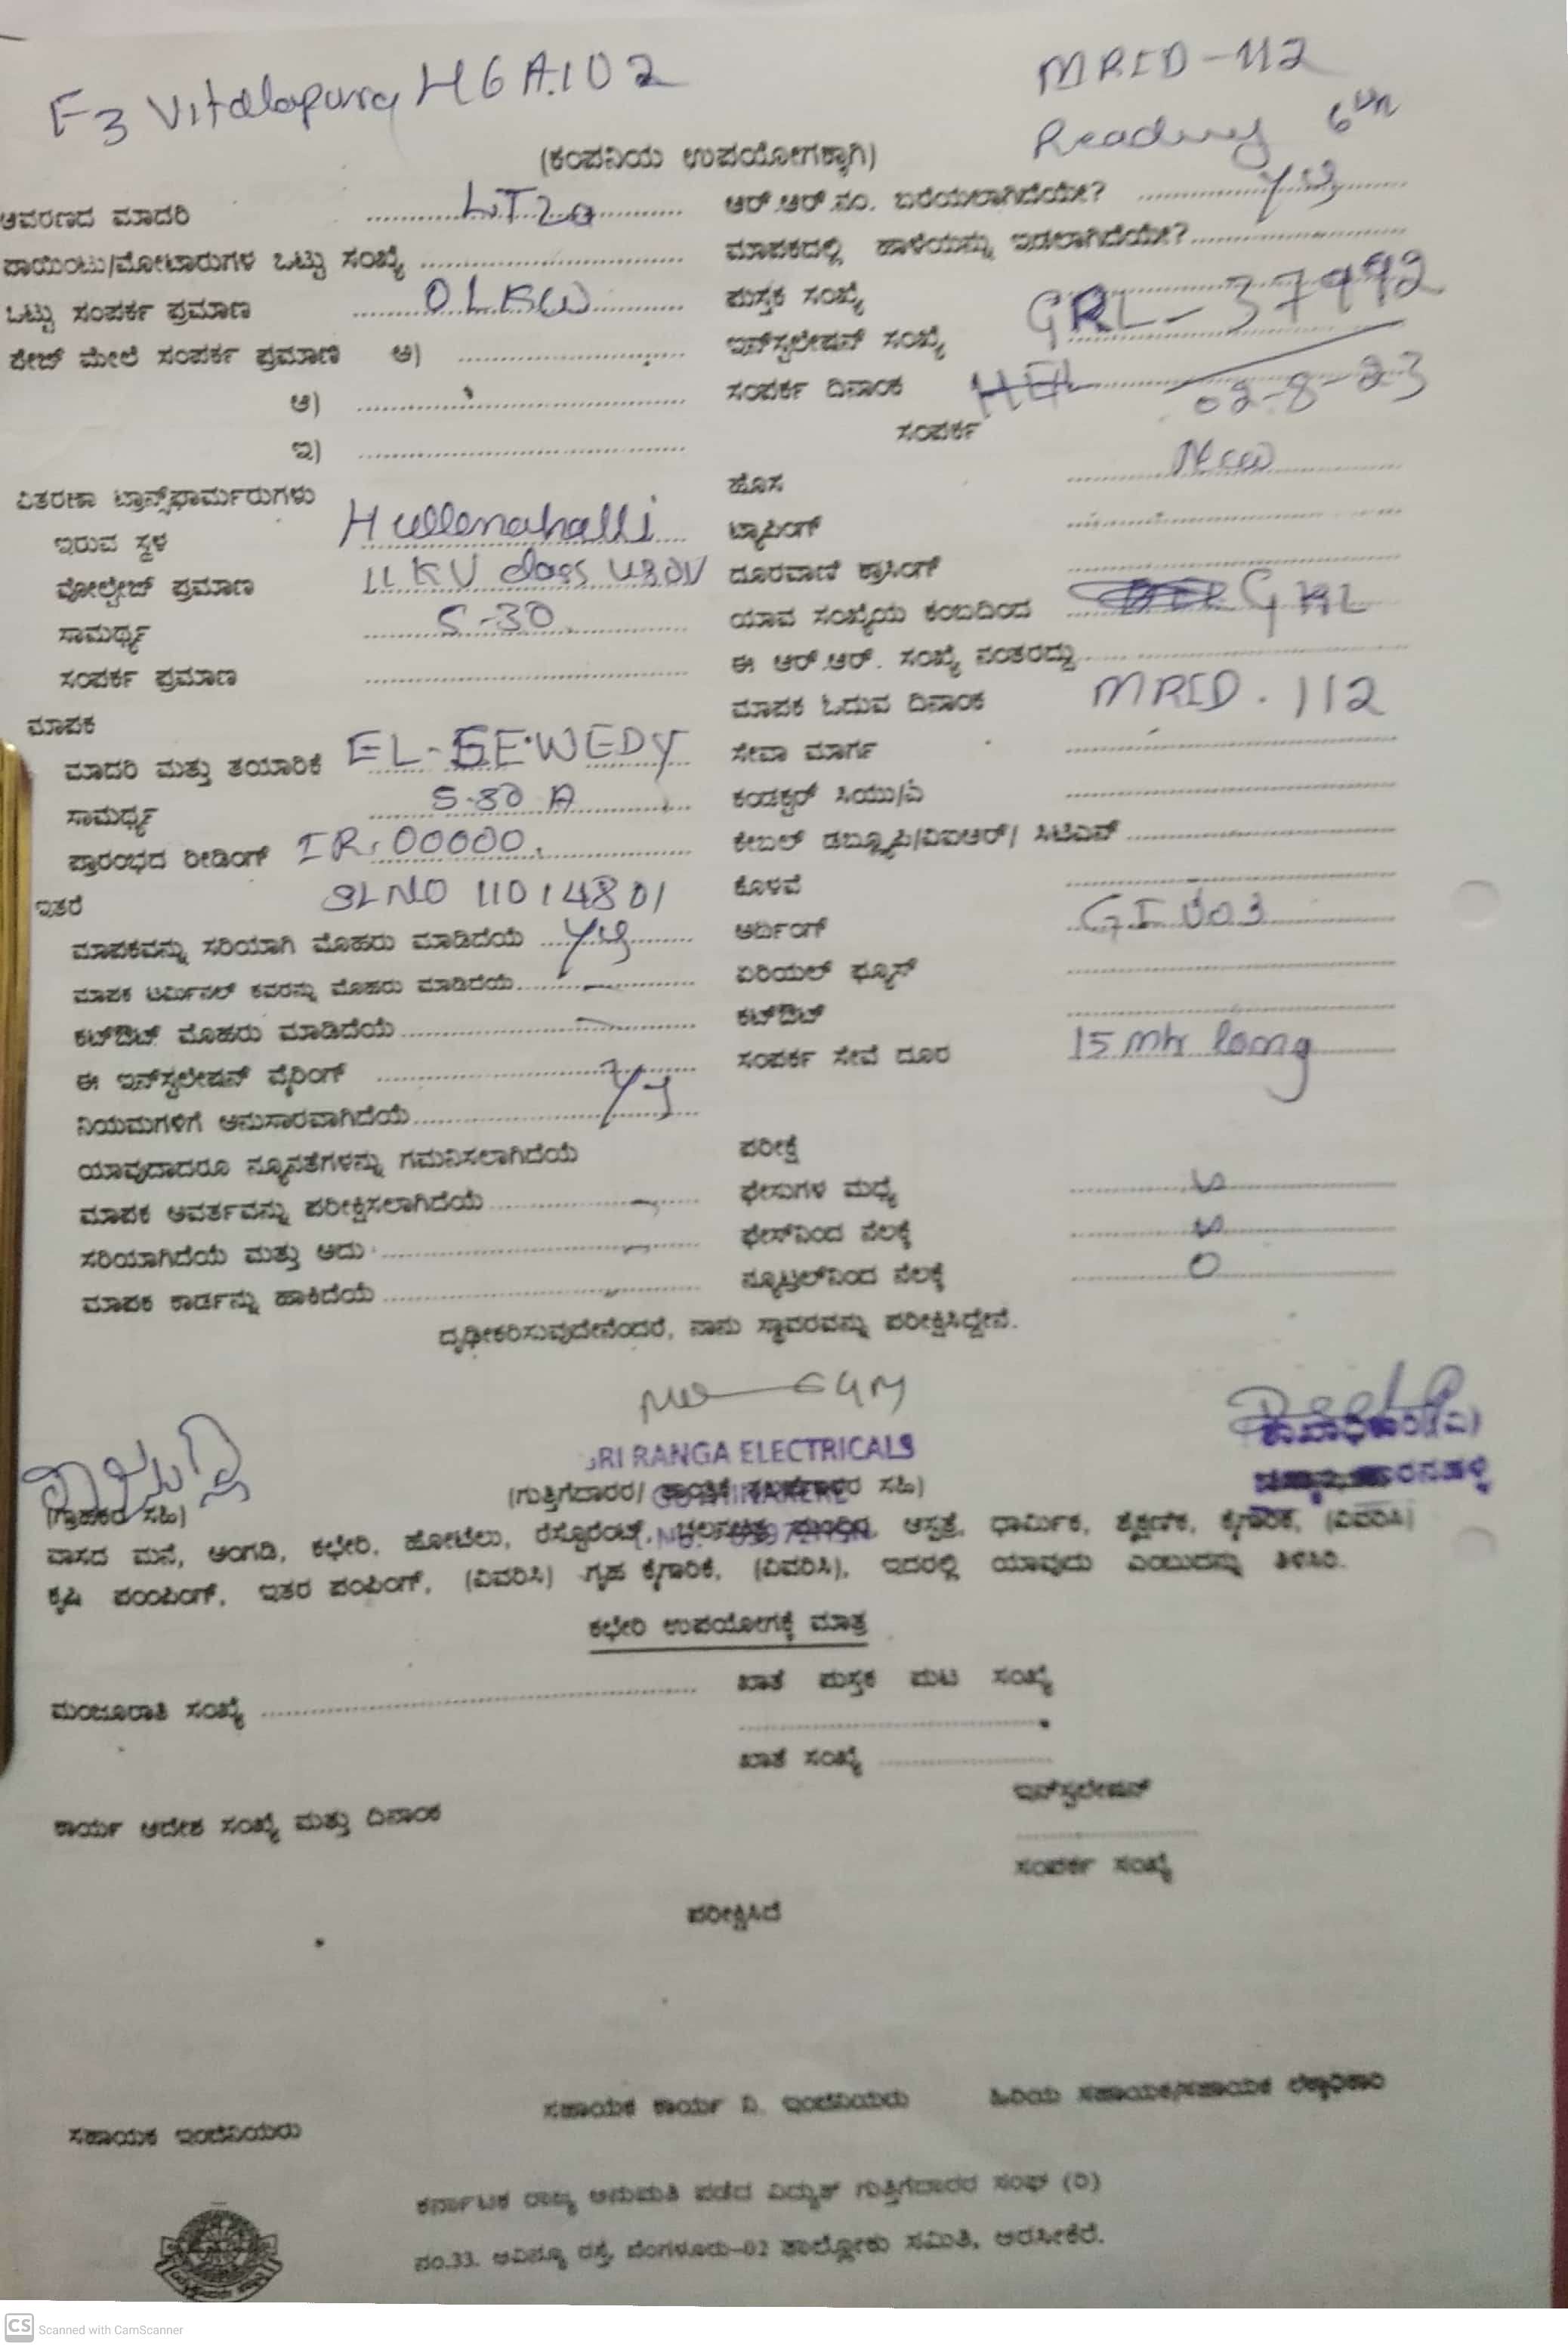 F3 Vitalapura HGA.102
MRID-112
Reading 6th
(ಕಂಪನಿಯ ಉಪಯೋಗಕ್ಕಾಗಿ)
ಆವರಣದ ಮಾದರಿ LT2a
ಆರ್.ಆರ್.ನಂ. ಬರೆಯಲಾಗಿದೆಯೇ? Yes
ಪಾಯಿಂಟು/ಮೋಟಾರುಗಳ ಒಟ್ಟು ಸಂಖ್ಯೆ
ಮಾಪಕದಲ್ಲಿ ಹಾಳೆಯನ್ನು ಇಡಲಾಗಿದೆಯೇ?
ಒಟ್ಟು ಸಂಪರ್ಕ ಪ್ರಮಾಣ 01 KW
ಪುಸ್ತಕ ಸಂಖ್ಯೆ
ಫೇಜ್ ಮೇಲೆ ಸಂಪರ್ಕ ಪ್ರಮಾಣ ಅ)
ಇನ್‌ಸ್ಟಲೇಷನ್ ಸಂಖ್ಯೆ GRL-37992
ಆ)
ಸಂಪರ್ಕ ದಿನಾಂಕ 02-8-23
ಇ)
ಸಂಪರ್ಕ
ಹೊಸ New
ವಿತರಣಾ ಟ್ರಾನ್ಸ್‌ಫಾರ್ಮರುಗಳು
ಇರುವ ಸ್ಥಳ Hullenahalli
ಟ್ಯಾಪಿಂಗ್
ವೋಲ್ಟೇಜ್ ಪ್ರಮಾಣ 11 KV class
ದೂರವಾಣಿ ಕ್ರಾಸಿಂಗ್
ಸಾಮರ್ಥ್ಯ 5-30
ಯಾವ ಸಂಖ್ಯೆಯ ಕಂಬದಿಂದ GRL
ಸಂಪರ್ಕ ಪ್ರಮಾಣ
ಈ ಆರ್.ಆರ್. ಸಂಖ್ಯೆ ನಂತರದ್ದು
ಮಾಪಕ
ಮಾಪಕ ಓದುವ ದಿನಾಂಕ MRID. 112
ಮಾದರಿ ಮತ್ತು ತಯಾರಿಕೆ EL-SEWEDY
ಸೇವಾ ಮಾರ್ಗ
ಸಾಮರ್ಥ್ಯ 5-30 A
ಕಂಡಕ್ಟರ್ ಸಿಯು/ಎ
ಪ್ರಾರಂಭದ ರೀಡಿಂಗ್ IR: 00000.
ಕೇಬಲ್ ಡಬ್ಲ್ಯೂಪಿ/ವಿಐಆರ್/ ಸಿಟಿಎಸ್
ಇತರೆ SL NO 11014801
ಕೊಳವೆ
ಮಾಪಕವನ್ನು ಸರಿಯಾಗಿ ಮೊಹರು ಮಾಡಿದೆಯೆ Yes
ಅರ್ದಿಂಗ್ GI
ಮಾಪಕ ಟರ್ಮಿನಲ್ ಕವರನ್ನು ಮೊಹರು ಮಾಡಿದೆಯೆ
ಏರಿಯಲ್ ಫ್ಯೂಸ್
ಕಟ್‌ಔಟ್ ಮೊಹರು ಮಾಡಿದೆಯೆ
ಕಟ್‌ಔಟ್
ಈ ಇನ್‌ಸ್ಟಲೇಷನ್ ವೈರಿಂಗ್
ಸಂಪರ್ಕ ಸೇವೆ ದೂರ 15 mtr long
ನಿಯಮಗಳಿಗೆ ಅನುಸಾರವಾಗಿದೆಯೆ Yes
ಯಾವುದಾದರೂ ನ್ಯೂನತೆಗಳನ್ನು ಗಮನಿಸಲಾಗಿದೆಯೆ
ಪರೀಕ್ಷೆ
ಮಾಪಕ ಆವರ್ತವನ್ನು ಪರೀಕ್ಷಿಸಲಾಗಿದೆಯೆ
ಫೇಸುಗಳ ಮಧ್ಯೆ
ಸರಿಯಾಗಿದೆಯೆ ಮತ್ತು ಅದು
ಫೇಸ್‌ನಿಂದ ನೆಲಕ್ಕೆ
ಮಾಪಕ ಕಾರ್ಡನ್ನು ಹಾಕಿದೆಯೆ
ನ್ಯೂಟ್ರಲ್‌ನಿಂದ ನೆಲಕ್ಕೆ 0
ದೃಢೀಕರಿಸುವುದೇನೆಂದರೆ, ನಾನು ಸ್ಥಾವರವನ್ನು ಪರೀಕ್ಷಿಸಿದ್ದೇನೆ.
SRI RANGA ELECTRICALS
(ಗ್ರಾಹಕರ ಸಹಿ)
(ಗುತ್ತಿಗೆದಾರರ/ ಸಹಿ)
ವಾಸದ ಮನೆ, ಅಂಗಡಿ, ಕಛೇರಿ, ಹೋಟೆಲು, ರೆಸ್ಟೊರೆಂಟ್, ಆಸ್ಪತ್ರೆ, ಧಾರ್ಮಿಕ, ಶೈಕ್ಷಣಿಕ, ಕೈಗಾರಿಕ, (ವಿವರಿಸಿ)
ಕೃಷಿ ಪಂಪಿಂಗ್, ಇತರ ಪಂಪಿಂಗ್, (ವಿವರಿಸಿ) ಗೃಹ ಕೈಗಾರಿಕೆ, (ವಿವರಿಸಿ), ಇದರಲ್ಲಿ ಯಾವುದು ಎಂಬುದನ್ನು ತಿಳಿಸಿರಿ.
ಕಛೇರಿ ಉಪಯೋಗಕ್ಕೆ ಮಾತ್ರ
ಮಂಜೂರಾತಿ ಸಂಖ್ಯೆ
ಖಾತೆ ಪುಸ್ತಕ ಪುಟ ಸಂಖ್ಯೆ
ಖಾತೆ ಸಂಖ್ಯೆ
ಇನ್‌ಸ್ಟಲೇಷನ್
ಕಾರ್ಯ ಆದೇಶ ಸಂಖ್ಯೆ ಮತ್ತು ದಿನಾಂಕ
ಸಂಪರ್ಕ ಸಂಖ್ಯೆ
ಪರೀಕ್ಷಿಸಿದೆ
ಸಹಾಯಕ ಇಂಜಿನಿಯರು
ಸಹಾಯಕ ಕಾರ್ಯ ನಿ. ಇಂಜಿನಿಯರು
ಹಿರಿಯ ಸಹಾಯಕ/ಸಹಾಯಕ ಲೆಕ್ಕಾಧಿಕಾರಿ
ಕರ್ನಾಟಕ ರಾಜ್ಯ ಅನುಮತಿ ಪಡೆದ ವಿದ್ಯುತ್ ಗುತ್ತಿಗೆದಾರರ ಸಂಘ (ರಿ)
ನಂ.33. ಅವಿನ್ಯೂ ರಸ್ತೆ, ಬೆಂಗಳೂರು-02 ತಾಲ್ಲೋಕು ಸಮಿತಿ, ಅರಸೀಕೆರೆ.
CS Scanned with CamScanner